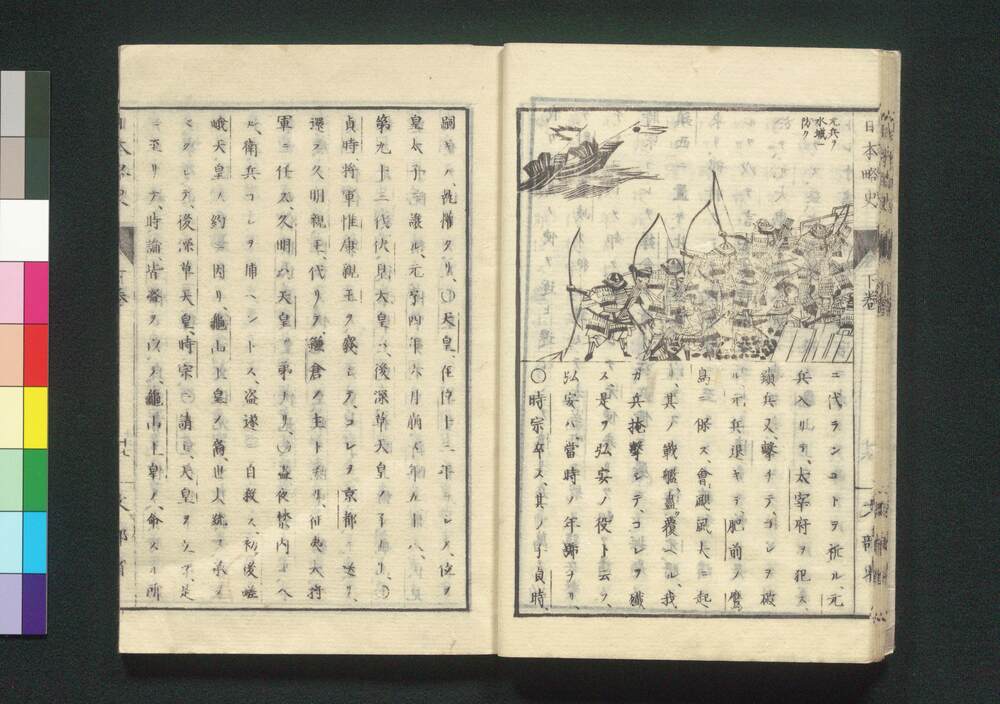 元兵ヲ
水城ニ
防ク
日本略史
下卷
文部省
ニ代ランコトヲ祈ル、元
兵入リテ、太宰府ヲ犯ス、
鎭兵又、擊チテ、コレヲ破
ル、元兵退キテ、肥前ノ鷹
島ニ保ス、會颶風大ニ起
リ、其ノ戰艦盡覆ヘル、我
カ兵掩擊シテ、コレヲ殲
ス、是ヲ弘安ノ役ト云フ、
弘安ハ當時ノ年號ナリ、
〇時宗卒ス、其ノ子貞時、
嗣
天皇、在位十三年
位ヲ
皇太子ニ讓ル、元享四年六月崩ス、年九十
第九十三代伏見天皇ハ、後深草天皇ノ子ナリ、〇
貞時、將軍惟康親王ヲ廢シテ、コレヲ京都ニ送リ、
還テ久明親王、代リテ、鎌倉ノ主ト爲リ、征夷大將
軍ニ任ス、久明ハ、天皇ノ弟ナリ、〇盜夜禁內ニ入
ル、衛兵コレヲ庫ヘントス、盜遂ニ自殺ス、初後嵯
峨天皇ノ約ニ因リ、龜山上皇ノ裔、世大統ヲ承
後深草天皇、時宗ニ請ヒ、天皇ヲ立ツ、是
ニ至リテ、時論、皆
龜山上皇ノ命スル所